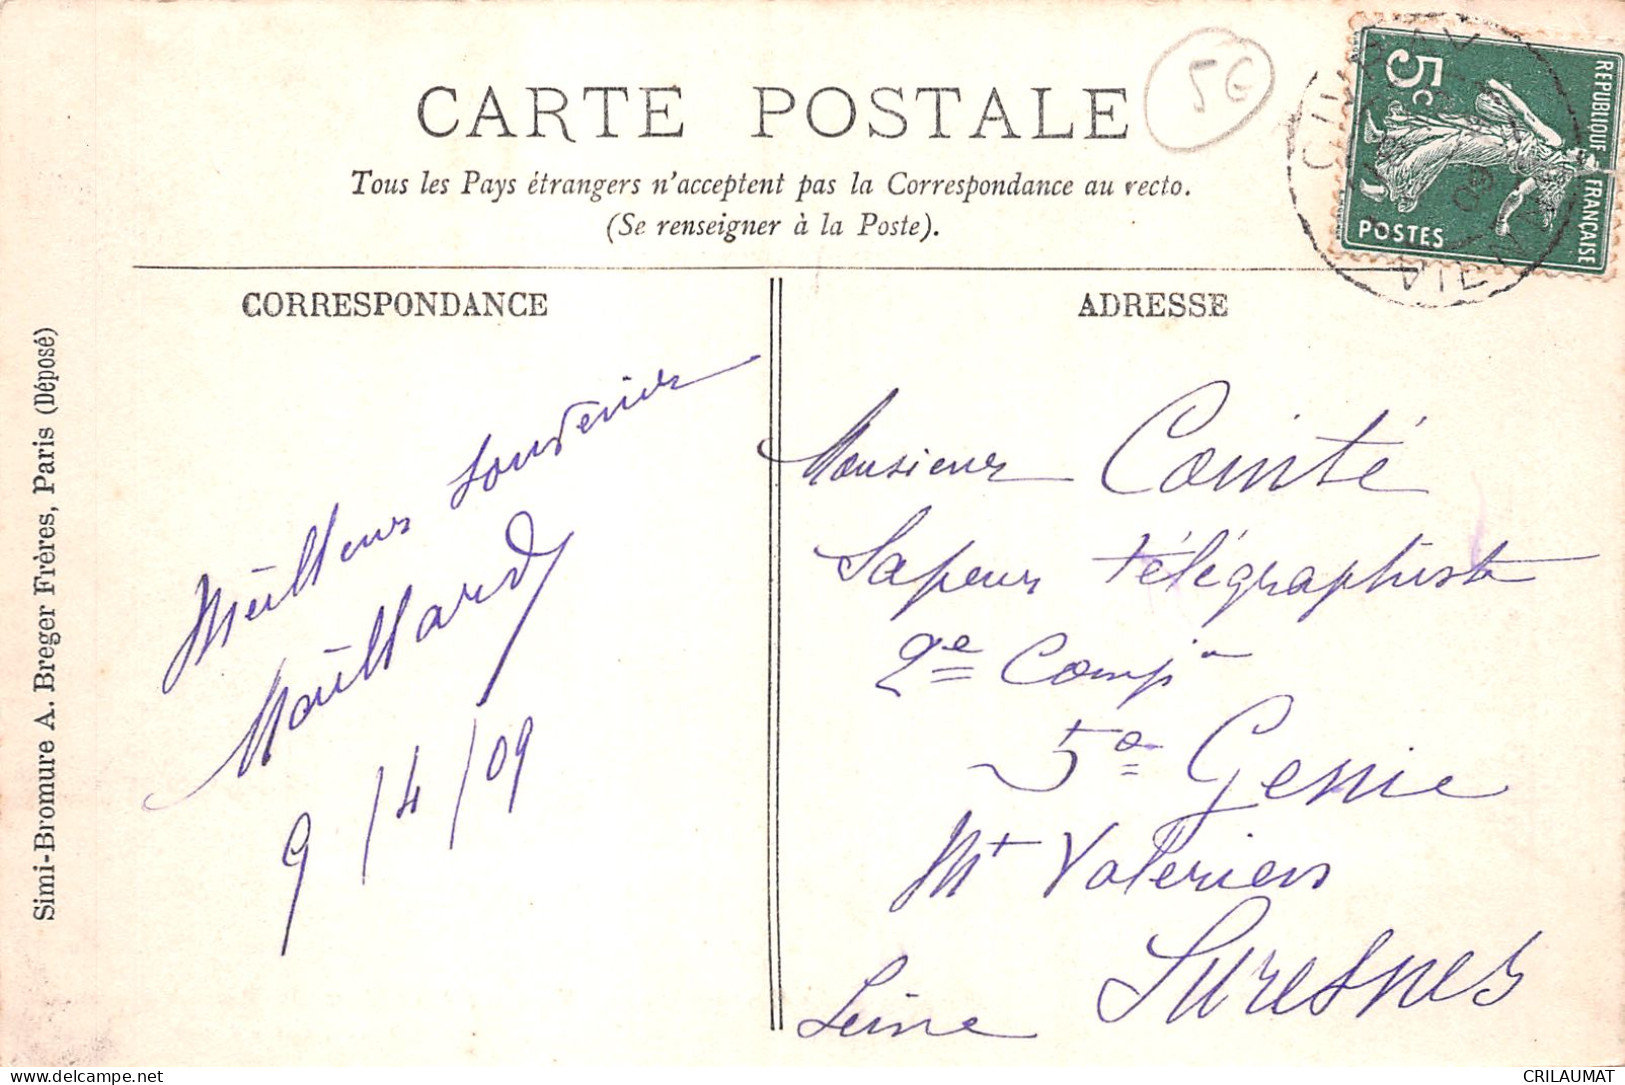 CARTE POSTALE
Tous les Pays étrangers n'acceptent pas la Correspondance au recto.
(Se renseigner à la Poste).
5G
REPUBLIQUE FRANÇAISE
5c
POSTES
CIVRAY
VIENNE
CORRESPONDANCE
Meilleurs souvenirs
Mouillard
9/4/09
ADRESSE
Monsieur Cointé
Sapeur télégraphiste
2e Comp
5e Genie
Mt Valerien
Suresnes
Seine
Simi-Bromure A. Breger Frères, Paris (Déposé)
CRILAUMAT